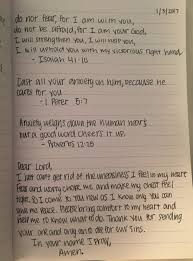 1/3/2017
do not fear, for I am with you,
do not be afraid, for I am your God;
I will strengthen you, I will help you,
I will uphold you with my victorious right hand.
- Isaiah 41:10
Cast all your anxiety on him, because he
cares for you
- 1 Peter 5:7
Anxiety weighs down the human heart
but a good word cheers it up.
- Proverbs 12:25
Dear Lord,
I just can't get rid of the uneasiness I feel in my heart.
Fear and worry choke me and make my chest feel
tight. So I come to you now as I know only You can
give me peace. Please bring comfort to my heart and
help me to know what to do. Thank you for sending
your one and only son to die for our sins.
In your name I pray,
Amen.